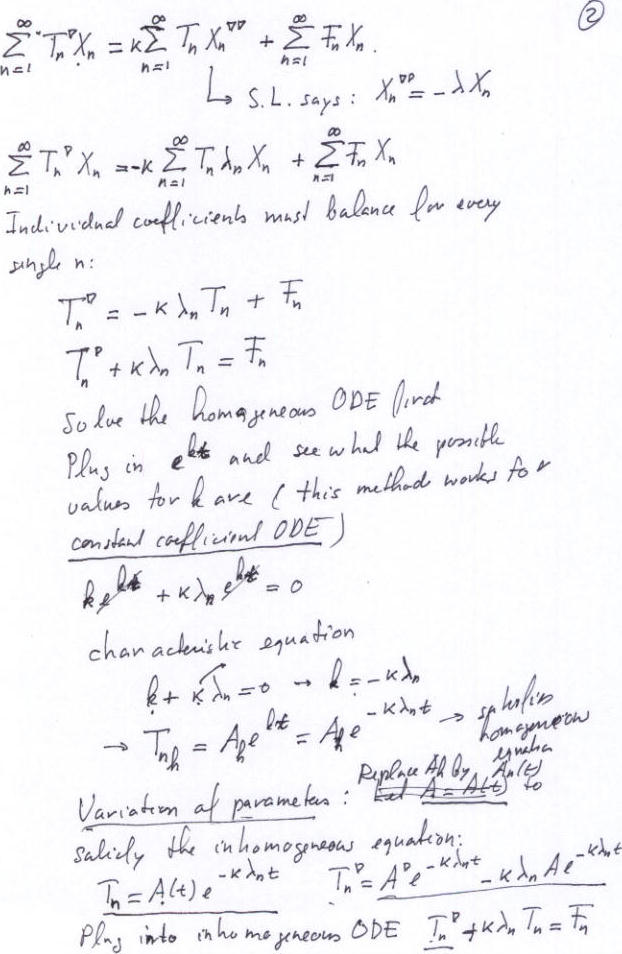 ②
∞ ∑ n=1 Tₙ' Xₙ = κ ∞ ∑ n=1 Tₙ Xₙ'' + ∞ ∑ n=1 Fₙ Xₙ.
↳ S.L. says: Xₙ'' = -λ Xₙ
∞ ∑ n=1 Tₙ' Xₙ = -κ ∞ ∑ n=1 Tₙ λₙ Xₙ + ∞ ∑ n=1 Fₙ Xₙ
Individual coefficients must balance for every
single n:
Tₙ' = -κ λₙ Tₙ + Fₙ
Tₙ' + κ λₙ Tₙ = Fₙ
Solve the homogeneous ODE first
Plug in e^{kt} and see what the possible
values for k are (this method works for
constant coefficient ODE)
k e^{kt} + κ λₙ e^{kt} = 0
characteristic equation
k + κ λₙ = 0 → k = -κλₙ
→ Tₙₕ = Aₕ e^{kt} = Aₕ e^{-κλₙt} → satisfies homogeneous equation
Variation of parameters: Replace Aₕ by Aₙ(t) to
Let A = A(t)
satisfy the inhomogeneous equation:
Tₙ = A(t) e^{-κλₙt} Tₙ' = A' e^{-κλₙt} - κ λₙ A e^{-κλₙt}
Plug into inhomogeneous ODE Tₙ' + κλₙ Tₙ = Fₙ